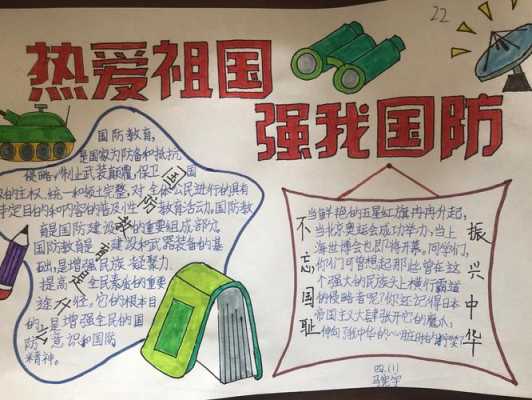 22
热爱祖国
强我国防
国防教育,
是国家为防备和抵抗
侵略,制止武装颠覆,保卫国
的主权、统一和领土完整,对全体公民进行的具有
特定目的和内容的普及性教育活动。国防教
育是国防建设的重要组成部分,
国防教育是建设和武器装备的基
础,是增强民族凝聚力
提高全民素质的重要
途径。它的根本目
的是增强全民的国
防意识和国防
精神。
国防教育
不忘国耻
振兴中华
当鲜艳的五星红旗冉冉升起,
当北京奥运会成功举办,当上
海世博会也即将开幕,同学们,
你们可曾想起那些曾在这
个强大的民族头上横行霸道
的侵略者呢?你还记得日本
帝国主义大肆张开它的魔爪,
伸向
中华的
四.(1)